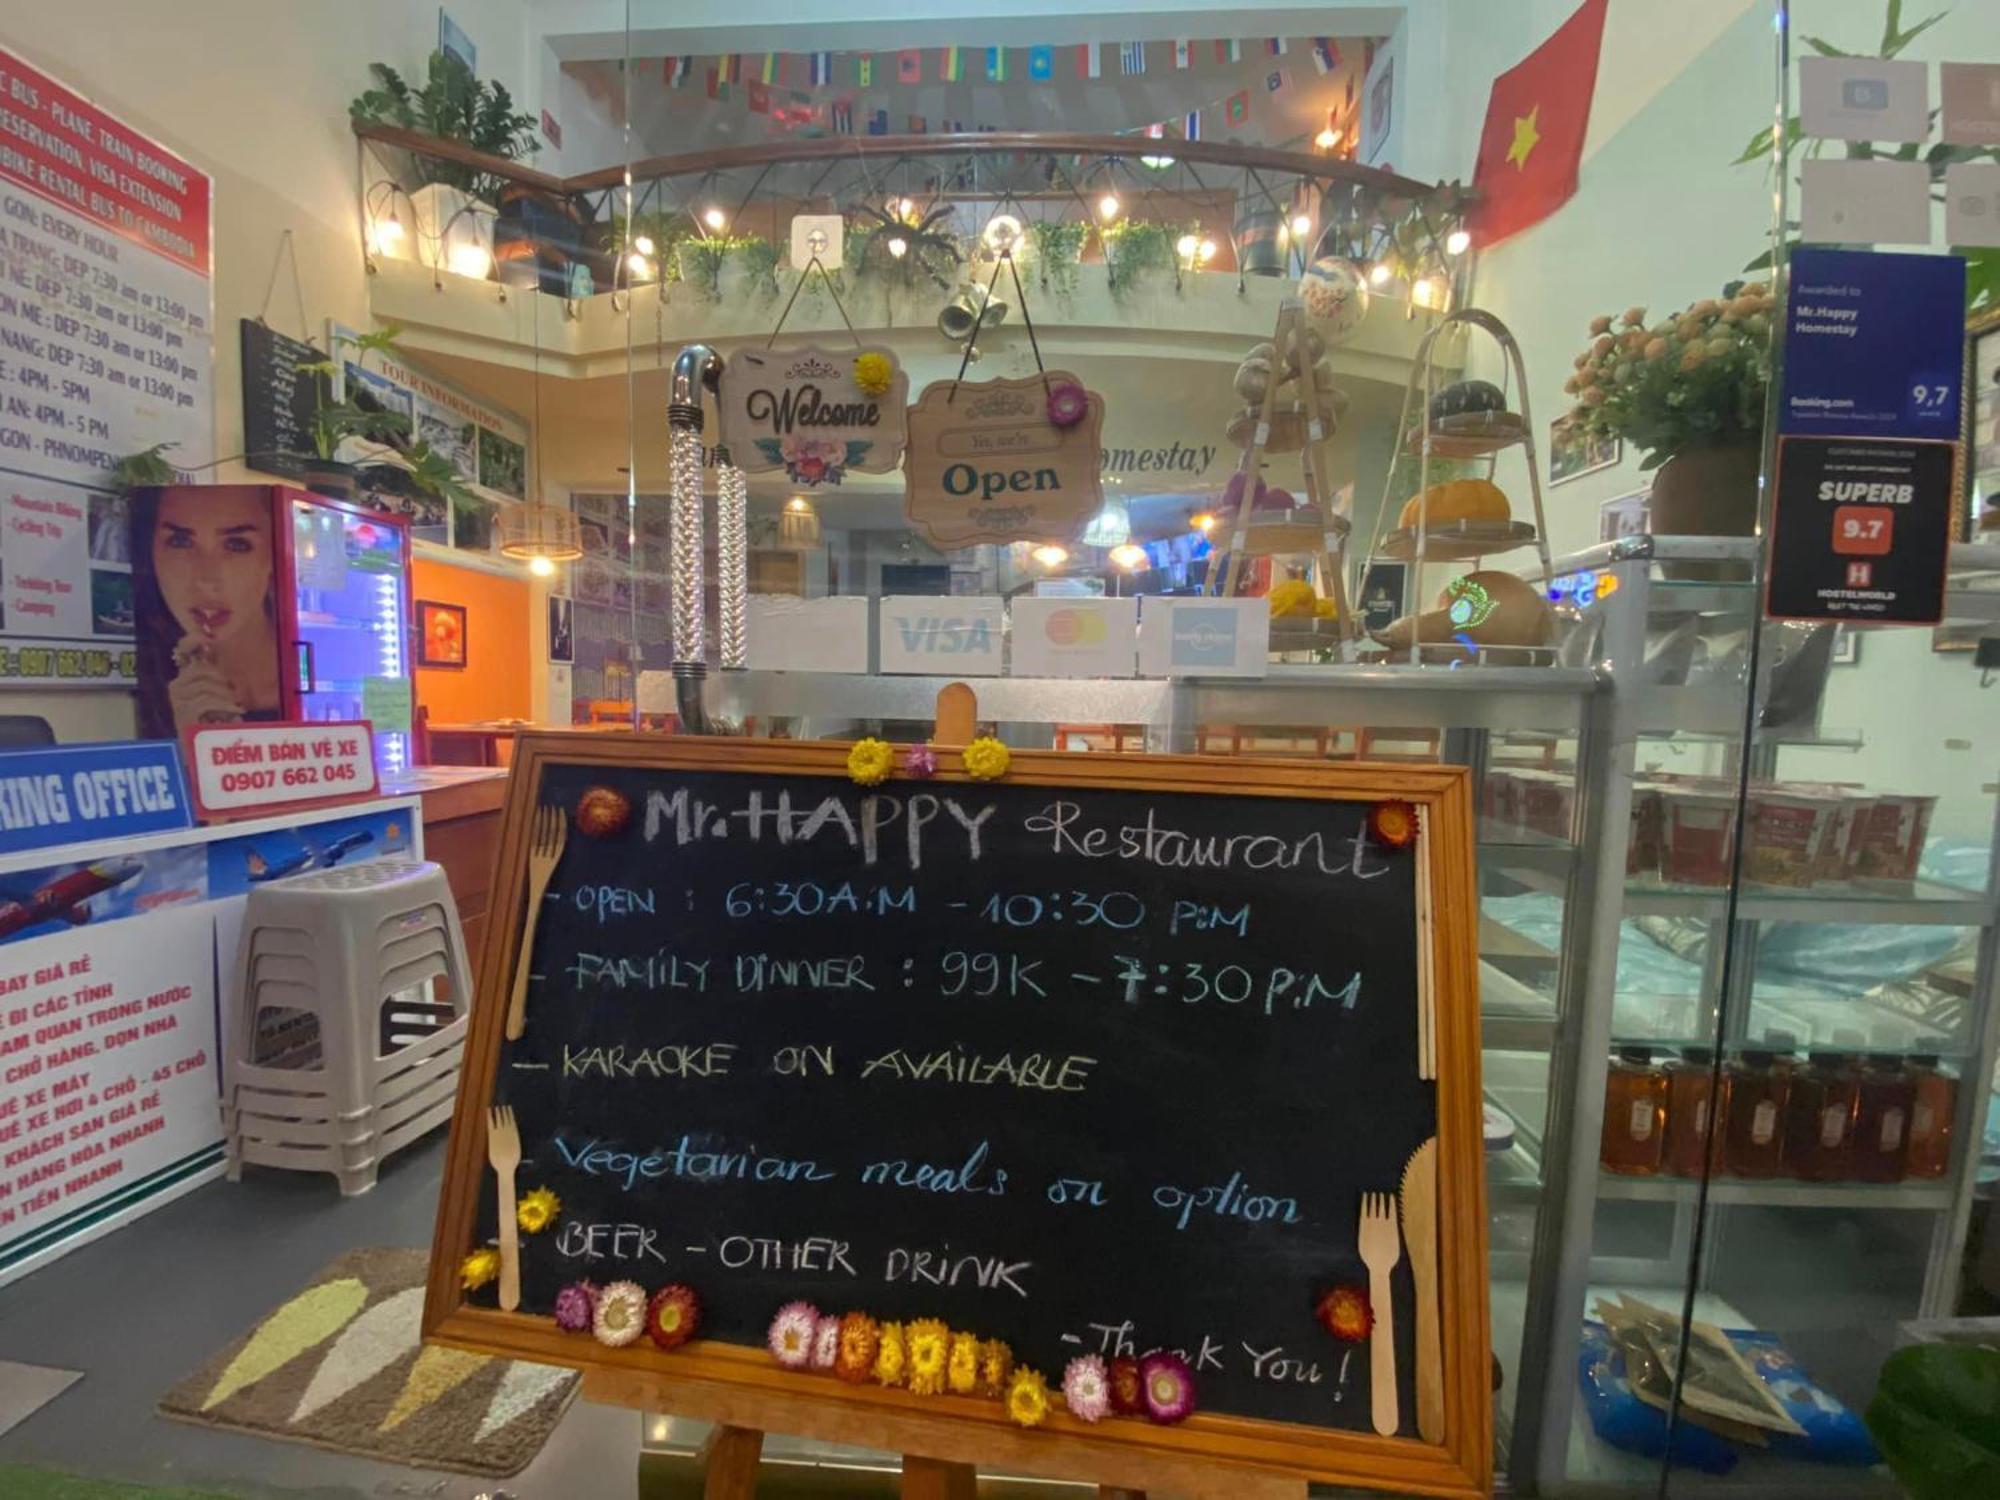 C BUS - PLANE, TRAIN BOOKING
RESERVATION, VISA EXTENSION
BIKE RENTAL BUS TO CAMBODIA
GON: EVERY HOUR
A TRANG: DEP 7:30 am or 13:00 pm
NE: DEP 7:30 am or 13:00 pm
ON ME : DEP 7:30 am or 13:00 pm
NANG: DEP 7:30 am or 13:00 pm
E : 4PM - 5PM
I AN: 4PM - 5 PM
GON - PHNOMPENH
- Mountain Biking
- Cycling Trip
- Trekking Tour
- Camping
E : 0907 662 045 - 02
TOUR INFORMATION
Welcome
Yes, we're
Open
omestay
VISA
Awarded to
Mr.Happy
Homestay
9,7
Booking.com
SUPERB
9.7
H
HOSTELWORLD
KING OFFICE
ĐIỂM BÁN VÉ XE
0907 662 045
BAY GIÁ RẺ
E ĐI CÁC TỈNH
AM QUAN TRONG NƯỚC
CHỞ HÀNG, DỌN NHÀ
UÊ XE MÁY
UÊ XE HƠI 4 CHỖ - 45 CHỖ
KHÁCH SẠN GIÁ RẺ
N HÀNG HÓA NHANH
N TIỀN NHANH
Mr. HAPPY Restaurant
- OPEN : 6:30A:M - 10:30 P:M
- FAMILY DINNER : 99K - 7:30 P:M
- KARAOKE ON AVAILABLE
- Vegetarian meals on option
- BEER - OTHER DRINK
- Thank You!